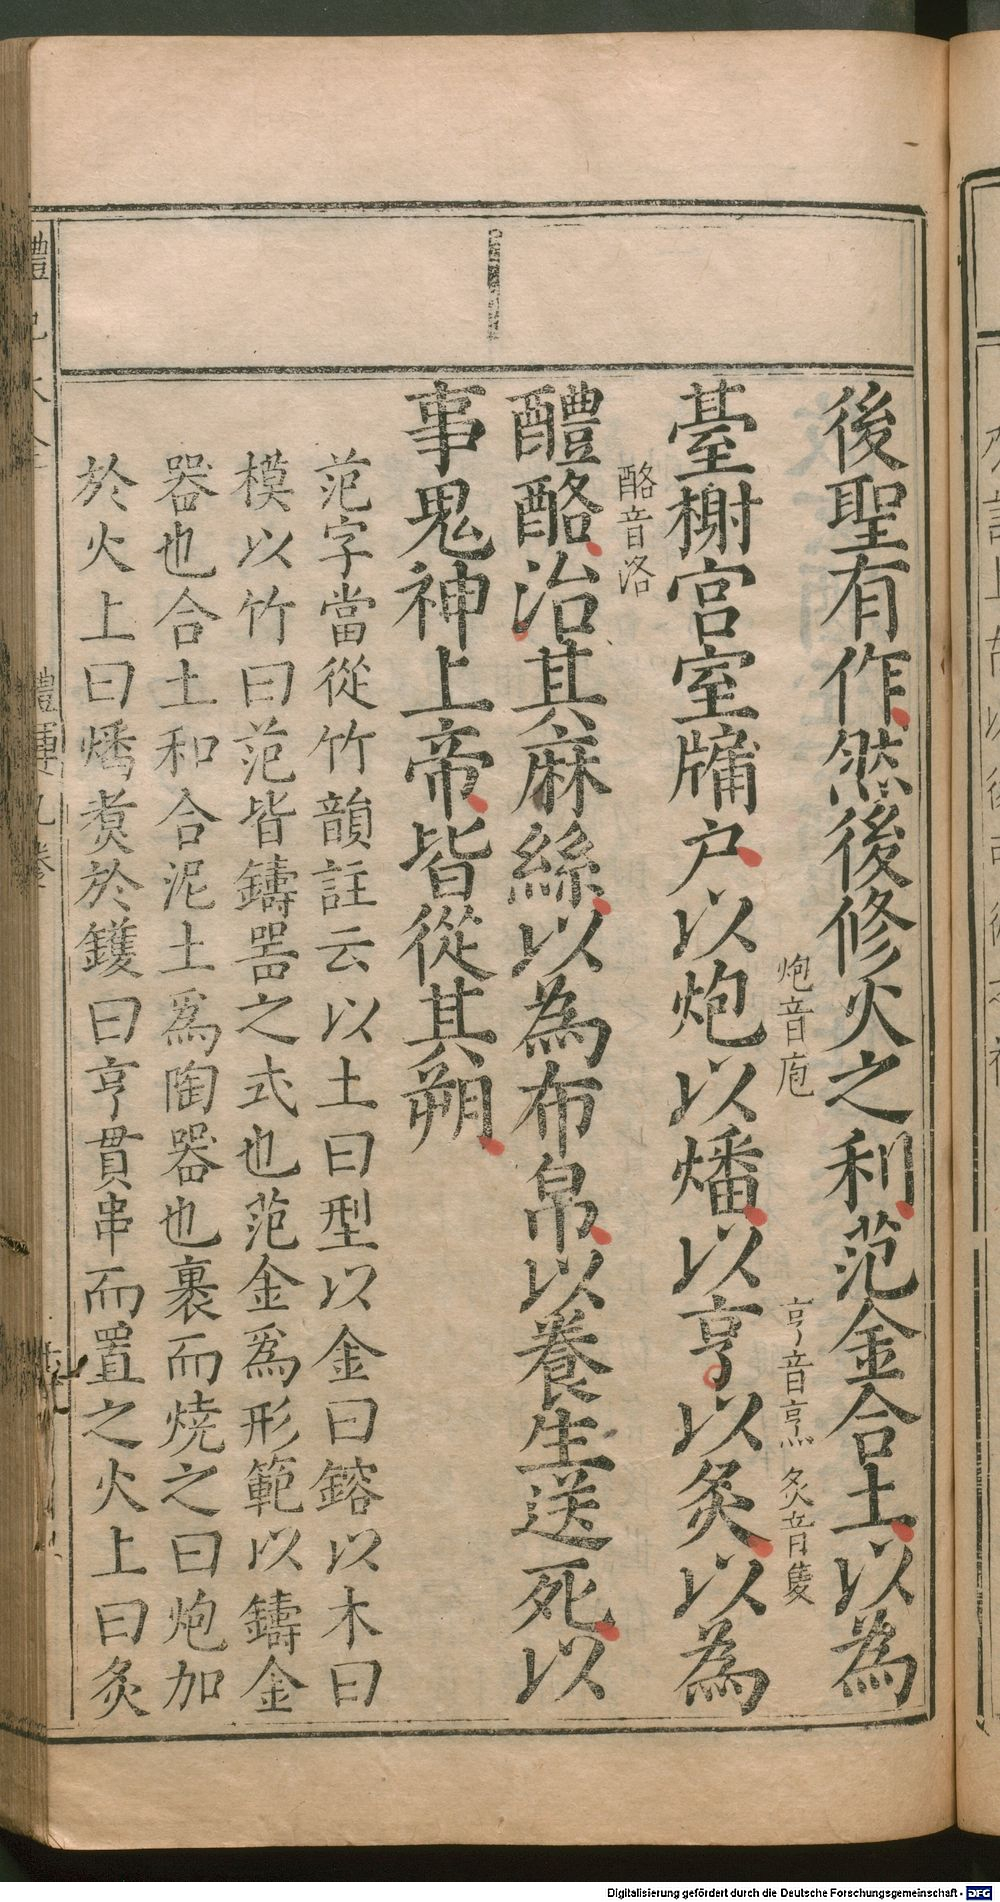 後聖有作然後修火之利范金合土以為
炮音庖 亨音烹 炙音隻
臺榭宮室牖户以炮以燔以亨以炙以為
酪音洛
醴酪治其麻絲以為布帛以養生送死以
事鬼神上帝皆從其朔
范字當從竹韻註云以土曰型以金曰鎔以木曰
模以竹曰范皆鑄噐之式也范金爲形範以鑄金
器也合土和合泥土爲陶器也裹而燒之曰炮加
於火上曰燔煑於鑊曰亨貫串而置之火上曰炙
禮運九卷
Digitalisierung gefördert durch die Deutsche Forschungsgemeinschaft - DFG